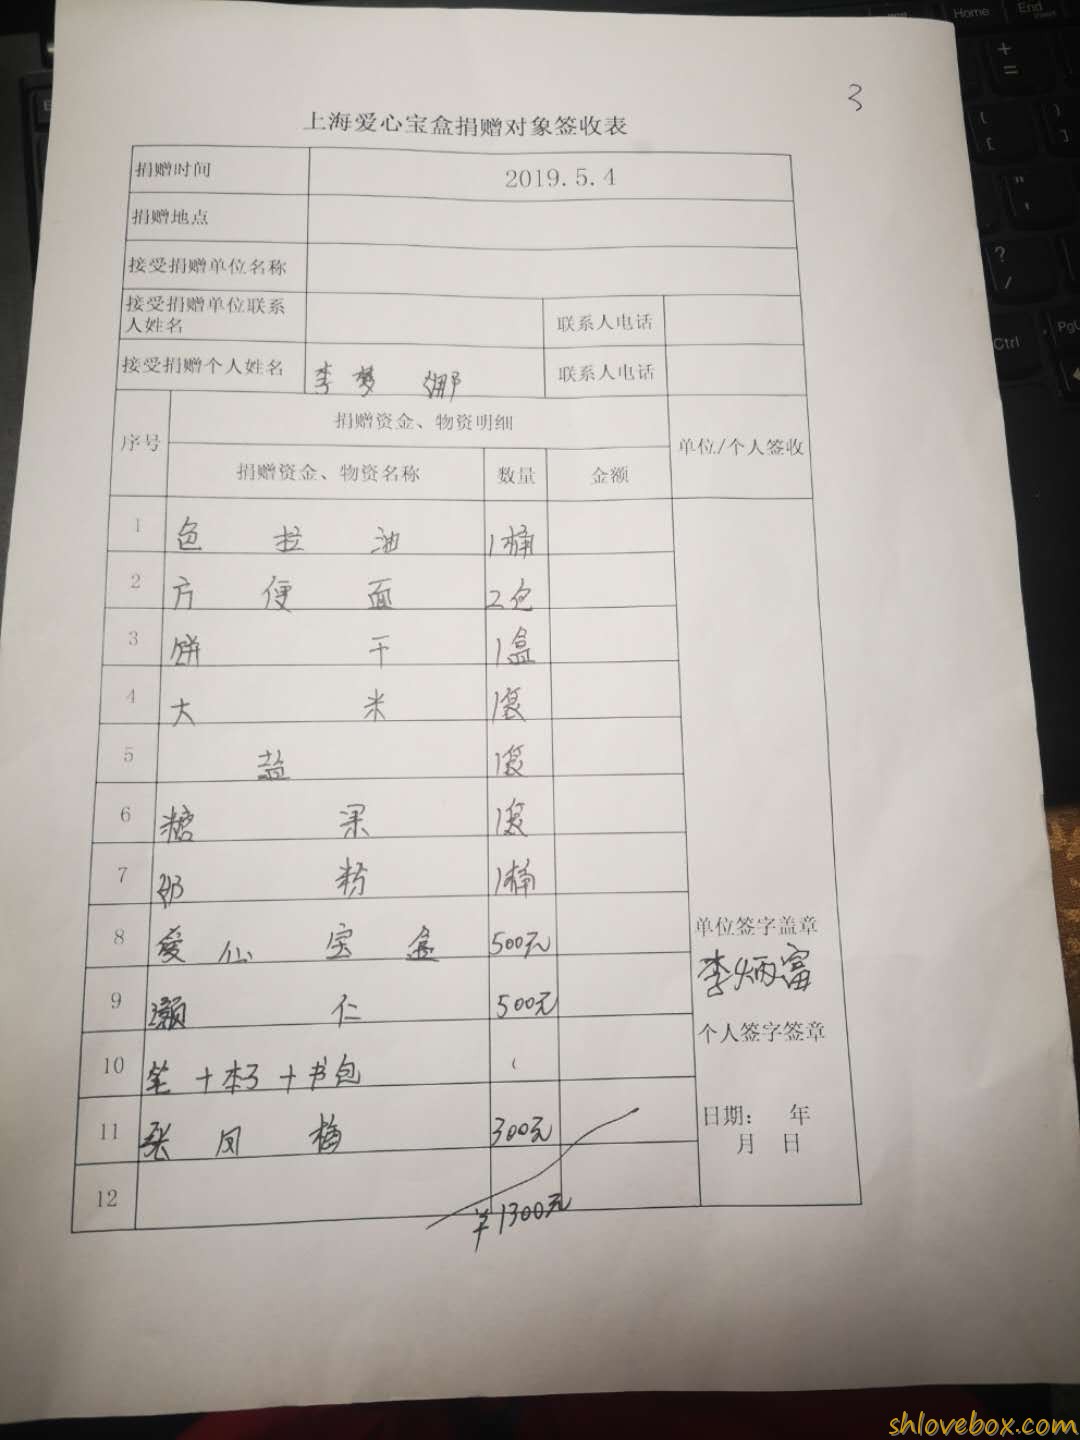 3
上海爱心宝盒捐赠对象签收表
捐赠时间 2019.5.4
捐赠地点
接受捐赠单位名称
接受捐赠单位联系人姓名 联系人电话
接受捐赠个人姓名 李梦娜 联系人电话
序号 捐赠资金、物资明细 单位/个人签收
捐赠资金、物资名称 数量 金额
1 色拉油 1桶
2 方便面 2包
3 饼干 1盒
4 大米 1袋
5 盐 1袋
6 糖果 1袋
7 奶粉 1桶
8 爱心宝盒 500元
9 灏仁 500元
10 笔+本子+书包
11 张凤梅 300元
12
¥1300元
单位签字盖章
李炳富
个人签字签章
日期： 年
月 日
shlovebox.com
Home
End
Ctrl
PgU